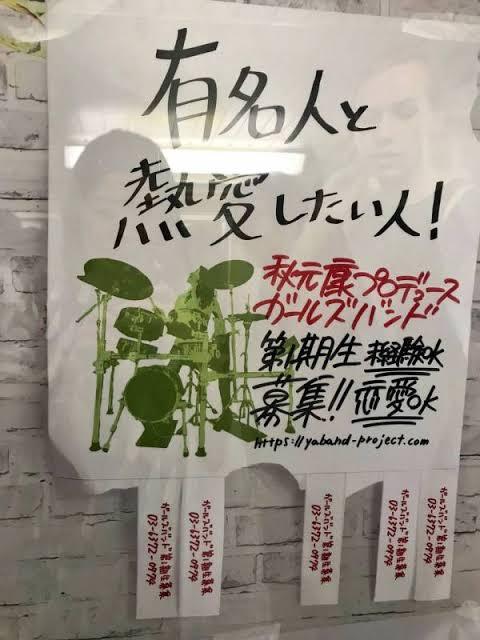 有名人と
熱愛したい人!
秋元康プロデュース
ガールズバンド
第1期生 未経験OK
募集!! 恋愛OK
https://yaband-project.com
ガールズバンド第1期生募集
03-6372-0974
ガールズバンド第1期生募集
03-6372-0974
ガールズバンド第1期生募集
03-6372-0974
ガールズバンド第1期生募集
03-6372-0974
ガールズバンド第1期生募集
03-6372-0974